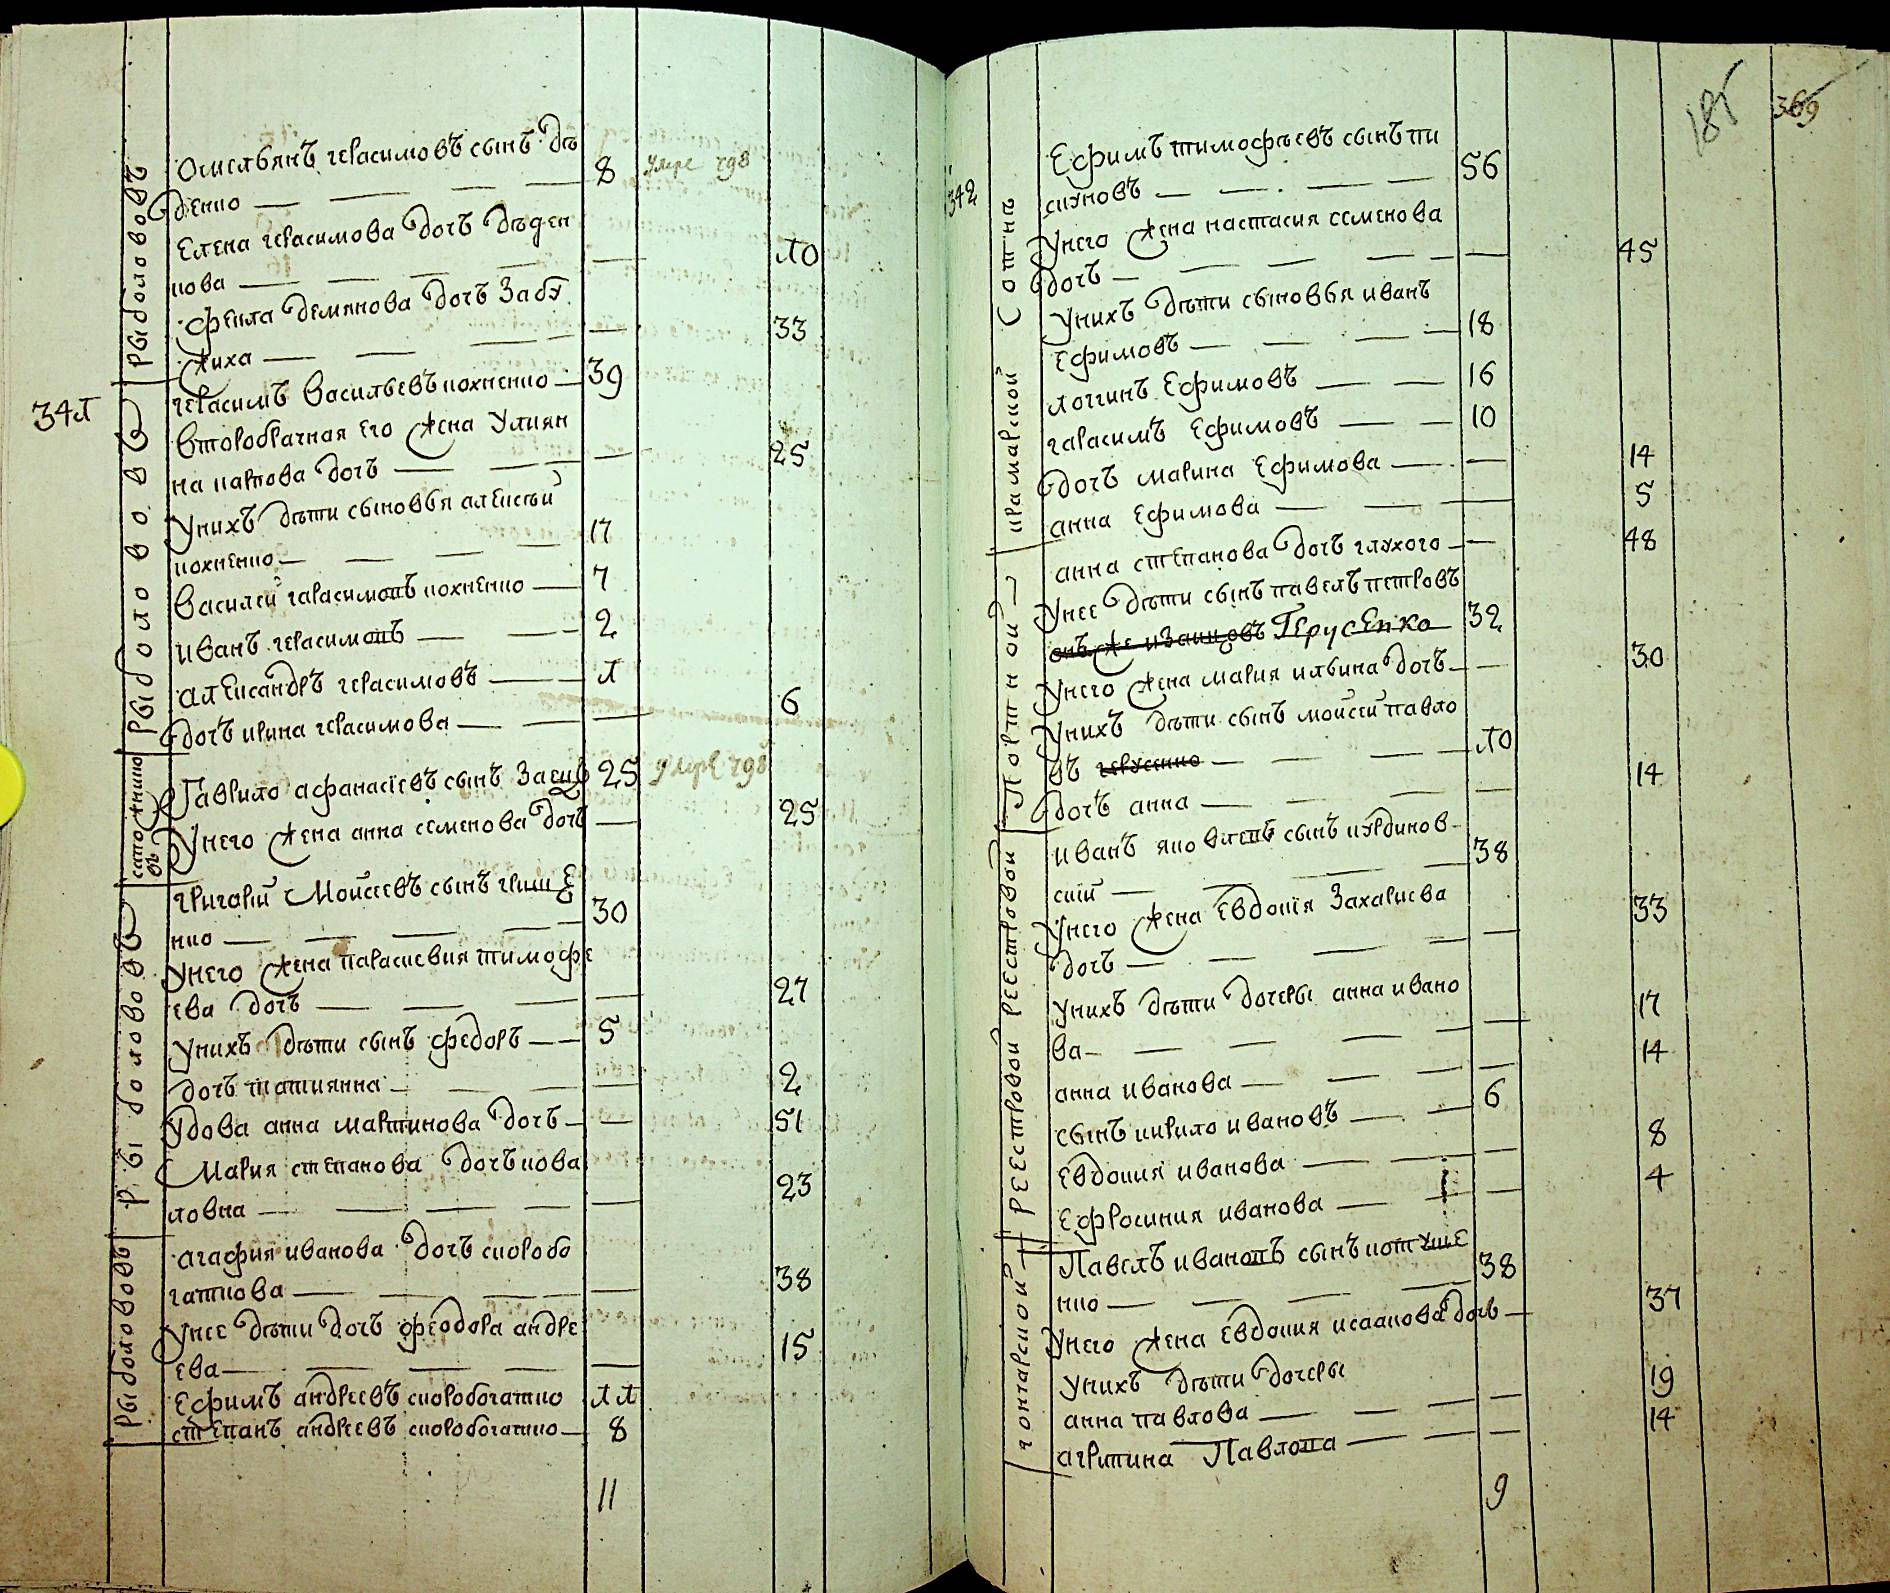 рыболововъ
Омельянъ герасимовъ сынъ дѣ
денко 8 умре 798
Елена герасимова дочь дѣден
кова 10
фекла демянова дочь Забу
жиха 33
341
рыболововъ
герасимъ Васильевъ похненко 39
второбрачная его жена Улиян
на карпова дочь 25
Унихъ дѣти сыновья алексѣй
похненко 17
Василей гарасимовъ похненко 7
иванъ герасимовъ 2
александръ герасимовъ 1
дочь ирина герасимова 6
сапожнико
въ
Гаврило афанасiевъ сынъ Заецъ 25 умре 798
Унего жена анна семенова дочь 25
рыболововъ
григорiй Моисеевъ сынъ грице
нко 30
Унего жена параскевия тимофе
ева дочь 27
Унихъ дѣти сынъ федоръ 5
дочь татиянна 2
удова анна мартинова дочь 51
Мария степанова дочь кова
ловна 23
рыболововъ
агафия иванова дочь скоробо
гаткова 38
Унее дѣти дочь феодора андре
ева 15
Ефимъ андреевъ скоробогатко 11
степанъ андреевъ скоробогатко 8
11
185 369
342
крамарской Сотнѣ
Ефимъ тимофѣевъ сынъ пи
скуновъ 56
Унего жена настасия семенова
дочь 45
Унихъ дѣти сыновья иванъ
Ефимовъ 18
логгинъ Ефимовъ 16
гарасимъ Ефимовъ 10
дочь марина Ефимова 14
анна Ефимова 5
Портной
анна степанова дочь глухого 48
Унее дѣти сынъ павелъ петровъ
Герусенко 32
Унего жена мария ильина дочь 30
Унихъ дѣти сынъ моисей павло
въ герусенко 10
дочь анна 14
реестровой реестровой
иванъ яковлевъ сынъ курдинов-
скiй 38
Унего жена Евдокiя Захариева
дочь 33
Унихъ дѣти дочеры анна ивано
ва 17
анна иванова 14
сынъ кирило ивановъ 6
Евдокия иванова 8
Ефросиния иванова 4
гончарской
Павелъ ивановъ сынъ котуше
нко 38
Унего жена Евдокия исаакова дочь 37
Унихъ дѣти дочеры
анна павлова 19
агрипина Павлова 14
9